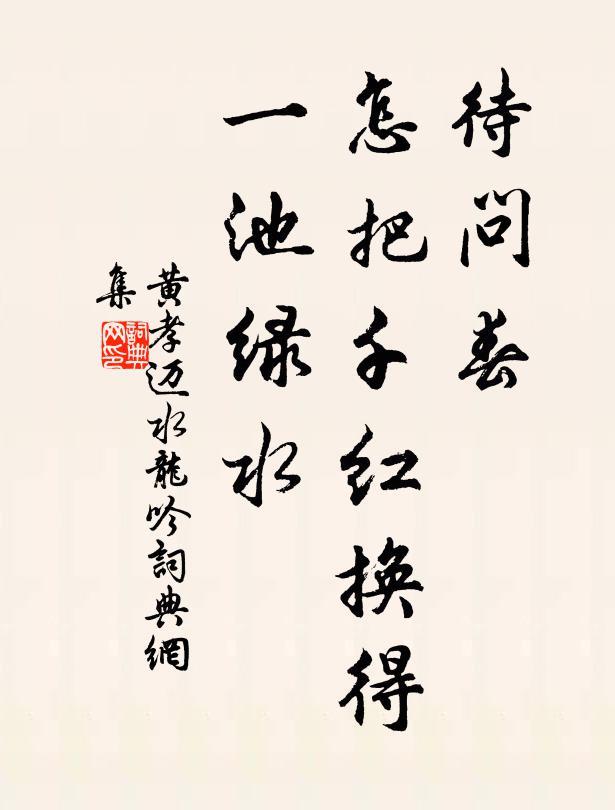 待问春
怎把千红换得
一池绿水
黄孝迈水龍吟詞典網
集
詞典
网印